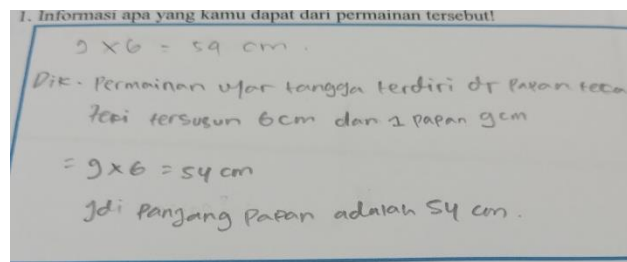 1. Informasi apa yang kamu dapat dari permainan tersebut!
9 x 6 = 54 cm.
Dik. Permainan ular tangga terdiri dr Papan
tersusun 6cm dan 1 papan 9cm
= 9 x 6 = 54 cm
Jdi Panjang Papan adalah 54 cm.